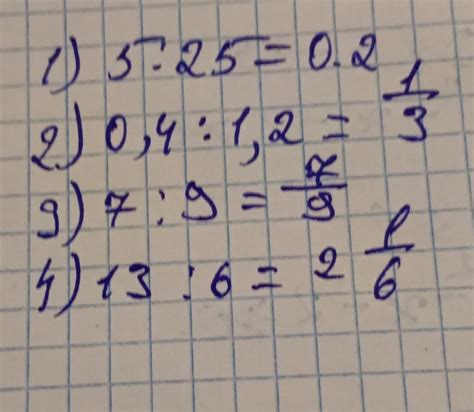 1) 5:25=0.2
2) 0,4:1,2=1/3
3) 7:9=7/9
4) 13:6=2 1/6